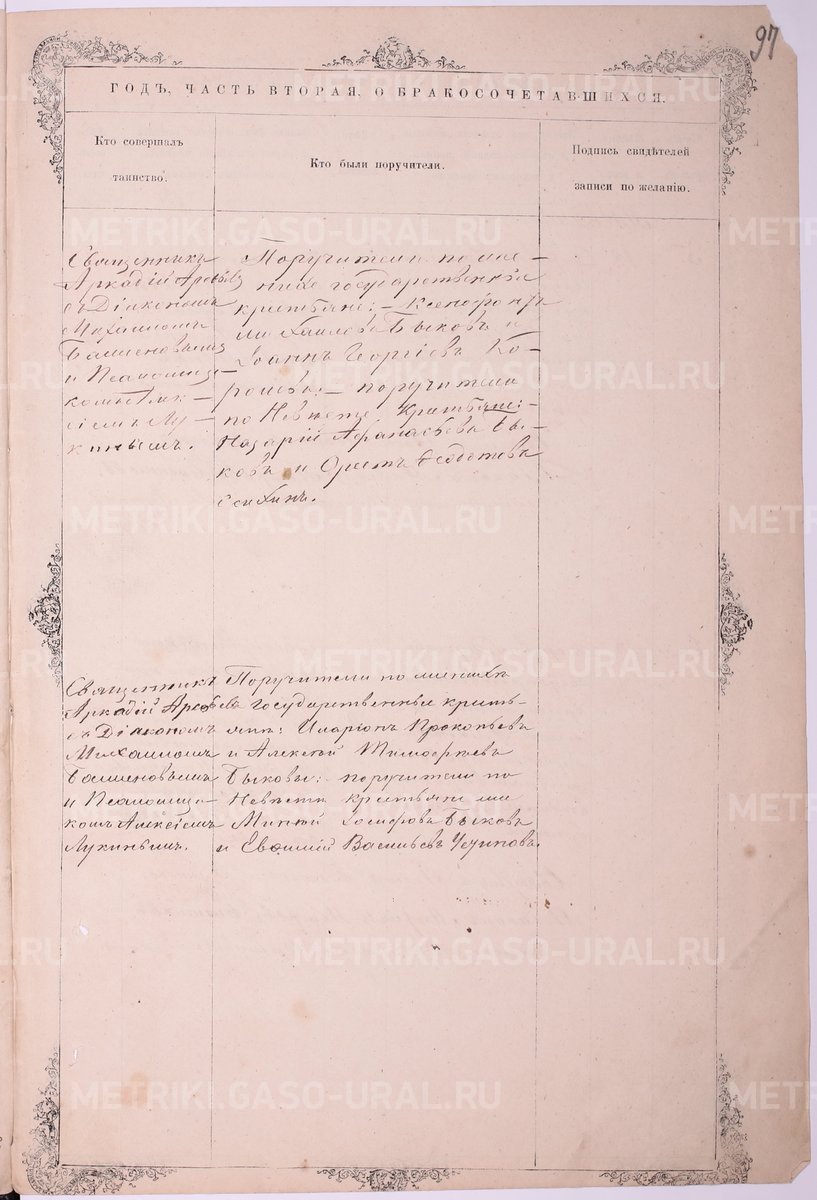 97
ГОДЪ, ЧАСТЬ ВТОРАЯ, О БРАКОСОЧЕТАВШИХСЯ.
Кто совершалъ
таинство.
Кто были поручители.
Подпись свидѣтелей
записи по желанію.
Священникъ
Аркадій
съ Діакономъ
Михаиломъ
и Псаломщи-
комъ Алек-
сіемъ Лу-
кинымъ.
Поручители по же-
нихѣ государственные
крестьяне: – Ксенофонтъ
Михаиловъ Быковъ и
Іоаннъ Георгіевъ Ко-
– поручители
по Невѣстѣ крестьяне: –
Назарій Афанасьевъ Бы-
ковъ и Орестъ
Священникъ
Аркадій
съ Діакономъ
Михаиломъ
и Псаломщи-
комъ Алексіемъ
Лукинымъ.
Поручители по женихѣ
Государственные кресть-
яне: Иларіонъ Прокопьевъ
и Алексѣй Тимофѣевъ
Быковы: поручители по
Невѣстѣ крестьяне
Быковъ
и Евѳимій Васильевъ
METRIKI.GASO-URAL.RU